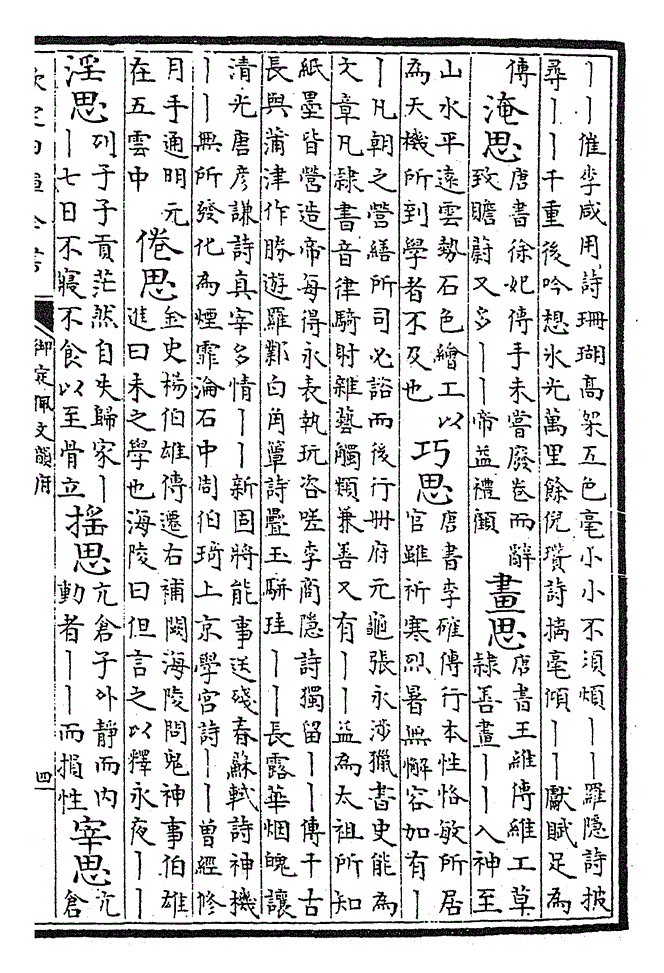 丨丨催李咸用詩珊瑚高架五色毫小小不須煩丨丨羅隱詩披
尋丨丨千重後吟想氷光萬里餘倪瓚詩摛毫傾丨丨獻賦足為
傳
淹思
唐書徐妃傳手未嘗廢卷而辭
致贍蔚又多丨丨帝益禮顧
畫思
唐書王維傳維工草
隷善畫丨丨入神至
山水平遠雲勢石色繪工以
為天機所到學者不及也
巧思
唐書李確傳行本性恪敏所居
官雖祈寒烈暑無懈容如有丨
丨凡朝之營繕所司必諮而後行冊府元龜張永涉獵書史能為
文章凡隷書音律騎射雜藝觸類兼善又有丨丨益為太祖所知
紙墨皆營造帝每得永表執玩咨嗟李商隱詩獨留丨丨傳千古
長與蒲津作勝遊羅鄴白角簟詩疊玉駢珪丨丨長露華烟魄讓
清光唐彦謙詩真宰多情丨丨新固將能事送殘春蘇軾詩神機
丨丨無所發化為煙霏淪石中周伯琦上京學宮詩丨丨曾經修
月手通明元
在五雲中
倦思
金史楊伯雄傳遷右補闕海陵問鬼神事伯雄
進曰未之學也海陵曰但言之以釋永夜丨丨
淫思
列子子貢茫然自失歸家丨
丨七日不寢不食以至骨立
摇思
亢倉子外靜而内
動者丨丨而損性
宰思
亢
倉
御定佩文韻府
四